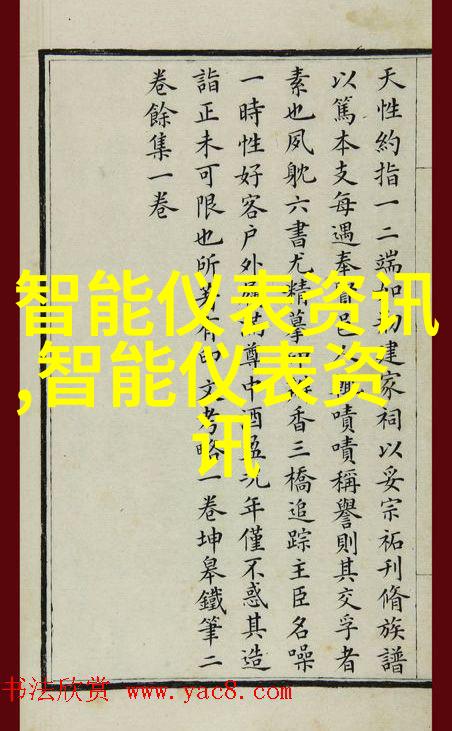 天性約指一二端如建家祠以妥宗祏刊脩族譜
以篤本支每遇奉邑嘖嘖稱譽則其交孚者
素也夙躭六書尤精摹香三橋追踪主臣名噪
一時性好客户外滿尊中酒盈况年僅不惑其造
詣正未可限也所著有印文考略一卷坤皋鐵筆二
卷餘集一卷
智能仪表资讯
,智能仪表资
讯
书法欣赏 www.yac8.com